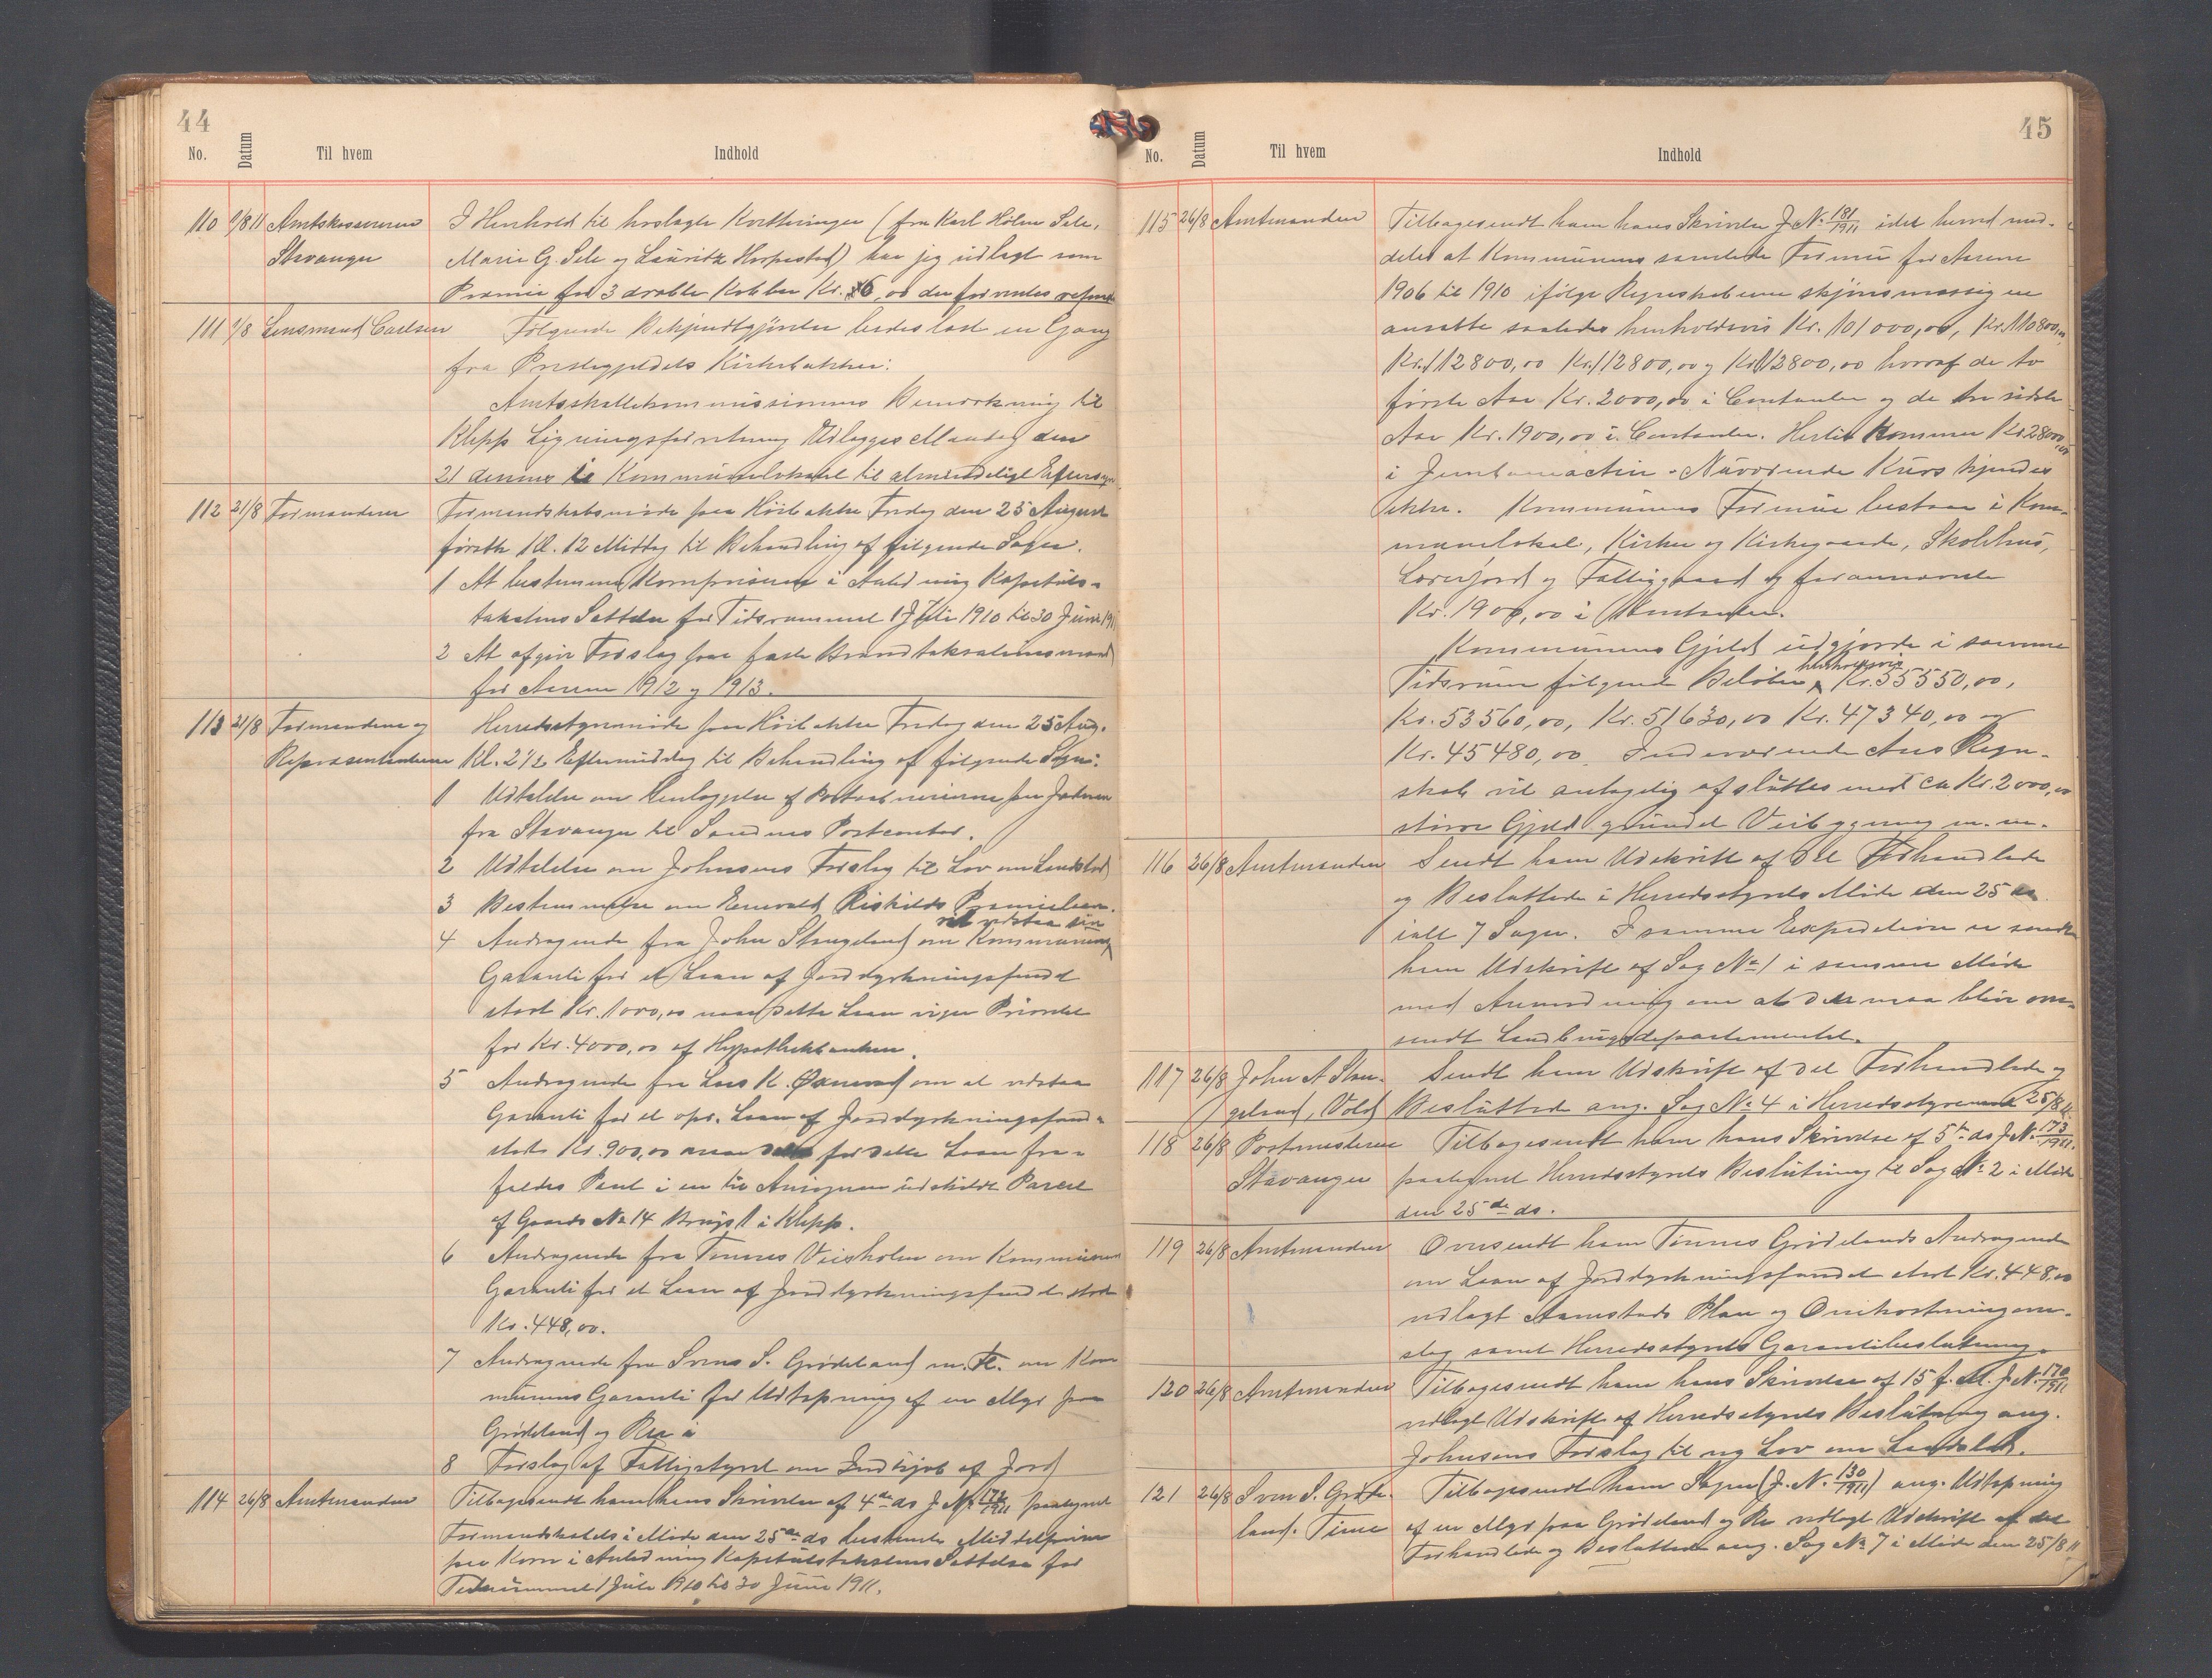 44
No. Datum Til hvem Indhold
110 9/8 11 Amtskassereren I Henhold til hoslagte Kvitteringer (fra Karl Holen Sele,
Stavanger Marie G. Sele og Lauritz Horpestad) har jeg udlagt som
Præmie for 3 dræbte Kobber Kr. 6,00 der forventes
111 9/8 Lensmand Carlsen Følgende Bekjendtgjørelse bedes læst en Gang
fra Prestegjeldets Kirkebakker:
Amtsskattekommissionens Bemerkning til
Klepp Ligningsforretning Udlægges Mandag den
21 dennes i Kommunelokalet til almindeligt Eftersyn
112 21/8 Formændene Formandskabsmøde paa Hörbakke Fredag den 25 August
førstk Kl. 12 Middag til Behandling af følgende Sager.
1 At bestemme Kornprisene i Anledning Kapitels-
takstens Sættelse for Tidsrummet 1 Juli 1910 til 30 Juni 1911
2 At afgive Forslag paa faste Brandtakstationsmænd
for Aarene 1912 og 1913.
113 21/8 Formændene og Herredsstyremøde paa Hörbakke Fredag den 25 Aug.
Repræsentanterne Kl. 2 1/2 Eftermiddag til Behandling af følgende Sager:
1 Udtalelse om Henlæggelse af Postaabnerierne paa Jæderen
fra Stavanger til Sandnes Postcontor.
2 Udtalelse om Johnsens Forslag til Lov om Landslod
3 Bestemmelse om Enevald Riskilds Præmielaan.
vil vedstaa sin
4 Andragende fra John Stangeland om Kommunens
Garanti for et Laan af Jorddyrkningsfondet
stort Kr. 1000,00 naar dette Laan viger Prioritet
for Kr. 4000,00 af Hypothekbanken.
5 Andragende fra Lars K. Øxnevad om at vedstaa
Garanti for et opr. Laan af Jorddyrkningsfond-
stort Kr. 900,00 naar for dette Laan fra-
faldes Pant i en til Ansøgeren udskildt Parcel
af Gaards No 14 Brugs 1 i Klepp.
6 Andragende fra Tønnes Veisholm om Kommunens
Garanti for et Laan af Jorddyrkningsfondet stort
Kr. 448,00.
7 Andragende fra Svend S. Grødeland m. Fl. om Kom
munens Garanti for Udtapning af en Myr paa
Grødeland og Re
8 Forslag af Fattigstyret om Indkjøb af Jord
114 26/8 Amtmanden Tilbagesendt ham hans Skrivelse af 4de ds J. No 172/1911 paategnet
Formandskabets i Møde den 25de ds bestemte Middelpriser
paa Korn i Anledning Kapitelstakstens Sættelse for
Tidsrummet 1 Juli 1910 til 30 Juni 1911.
45
No. Datum Til hvem Indhold
115 26/8 Amtmanden Tilbagesendt ham hans Skrivelse J. No. 181/1911 idet herved med-
deles at Kommunens samlede Formue for Aarene
1906 til 1910 ifølge Regnskaberne skjønsmæssig er
ansatte saaledes henholdsvis Kr. 101000,00, Kr. 110800,00
Kr. 112800,00 Kr. 112800,00 og Kr. 112800,00 hvoraf de to
første Aar Kr. 2000,00 i Contanter og de tre sidste
Aar Kr. 1900,00 i Contanter. Hertil kommer Kr. 2800,00
i Jernbaneactier. Nuværende Kurs kjendes
ikke. Kommunens Formue bestaar i Kom-
munelokal, Kirker og Kirkegaarde, Skolehus,
Lærerjord og Fattiggaard og forannævnte
Kr. 1900,00 i Contanter.
Kommunens Gjeld udgjorde i samme
henholdsvis
Tidsrum følgende Beløber Kr. 55550,00,
Kr. 53560,00, Kr. 51630,00 Kr. 47340,00 og
Kr. 45480,00. Indeværende Aars Regn-
skab vil antagelig afsluttes med ca Kr. 2000,00
større Gjeld grundet Veibygning m. m.
116 26/8 Amtmanden Sendt ham Udskrift af det Forhandlede
og Besluttede i Herredsstyrets Møde den 25 ds
ialt 7 Sager. I samme Expedition er sendt
ham Udskrift af Sag No 1 i samme Møde
med Anmodning om at den maa blive om-
sendt Landbrugsdepartementet.
117 26/8 John A Stan- Sendt ham Udskrift af det Forhandlede og
geland, Vold Besluttede ang. Sag No 4 i Herredsstyremøde 25/8 11.
118 26/8 Postmesteren Tilbagesendt ham hans Skrivelse af 5te ds J. No. 173/1911.
Stavanger paategnet Herredsstyrets Beslutning til Sag No 2 i Møde
den 25de ds.
119 26/8 Amtmanden Oversendt ham Tønnes Grødelands Andragende
om Laan af Jorddyrkningsfondet stort Kr. 448,00
vedlagt Aamstads Plan og Omkostningsover-
slag samt Herredsstyrets Garantibeslutning.
120 26/8 Amtmanden Tilbagesendt ham hans Skrivelse af 15 f. M. J. No. 170/1911
vedlagt Udskrift af Herredsstyrets Beslutning ang.
Johnsens Forslag til ny Lov om Landslod.
121 26/8 Sven S. Grøde- Tilbagesendt ham Sagen (J. No. 130/1911) ang. Udtapning
land. Time af en Myr paa Grødeland og Re vedlagt Udskrift af det
Forhandlede og Besluttede ang. Sag No 7 i Møde den 25/8 11